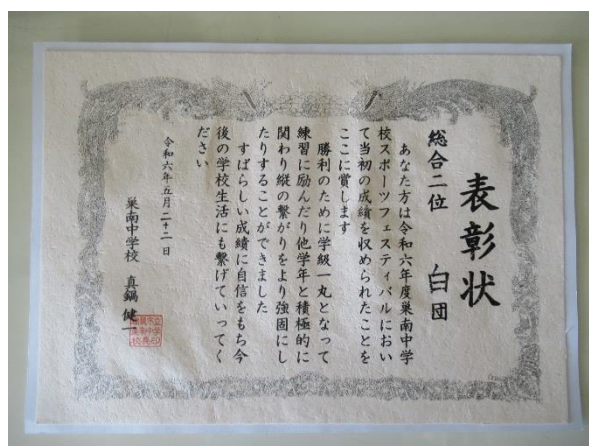 表彰状
総合二位 白団
あなた方は令和六年度巣南中学
校スポーツフェスティバルにおい
て当初の成績を収められたことを
ここに賞します
勝利のために学級一丸となって
練習に励んだり他学年と積極的に
関わり縦の繋がりをより強固にし
たりすることができました
すばらしい成績に自信をもち今
後の学校生活にも繋げていってく
ださい
令和六年五月二十二日
巣南中学校 真鍋 健一